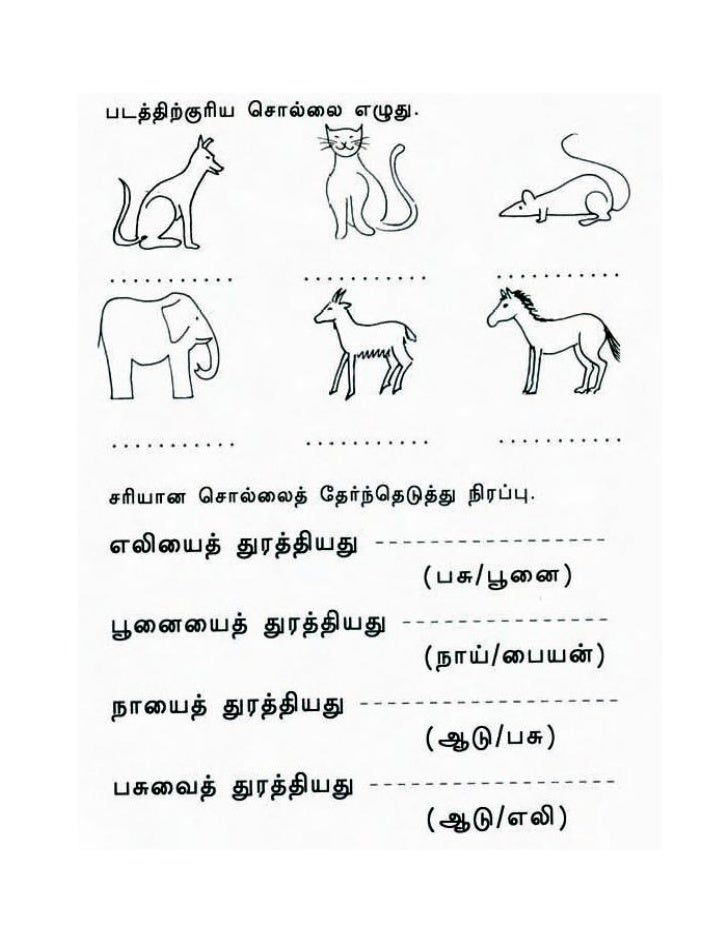 படத்திற்குரிய சொல்லை எழுது.
............ ............ ............
............ ............ ............
சரியான சொல்லைத் தேர்ந்தெடுத்து நிரப்பு.
எலியைத் துரத்தியது -----------------
(பசு/பூனை)
பூனையைத் துரத்தியது ---------------
(நாய்/பையன்)
நாயைத் துரத்தியது -------------------
(ஆடு/பசு)
பசுவைத் துரத்தியது ------------------
(ஆடு/எலி)